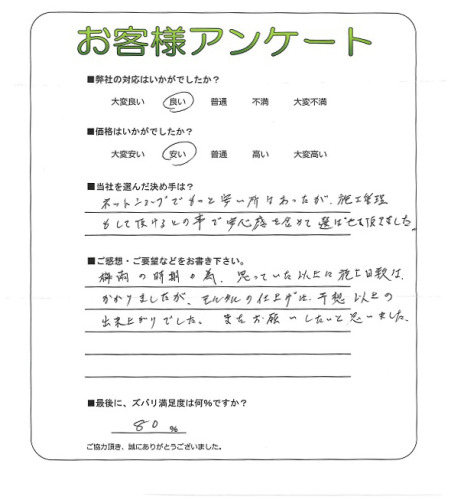 お客様アンケート
■弊社の対応はいかがでしたか？
大変良い 良い 普通 不満 大変不満
■価格はいかがでしたか？
大変安い 安い 普通 高い 大変高い
■当社を選んだ決め手は？
ネットショップでもっと安い所はあったが、施工管理
もして頂けるとの事で安心感を含めて選ばせて頂きました。
■ご感想・ご要望などをお書き下さい。
梅雨の時期の為、思っていた以上に施工日数は、
かかりましたが、モルタルの仕上げは、予想以上の
出来上がりでした。 またお願いしたいと思いました。
■最後に、ズバリ満足度は何％ですか？
80 %
ご協力頂き、誠にありがとうございました。